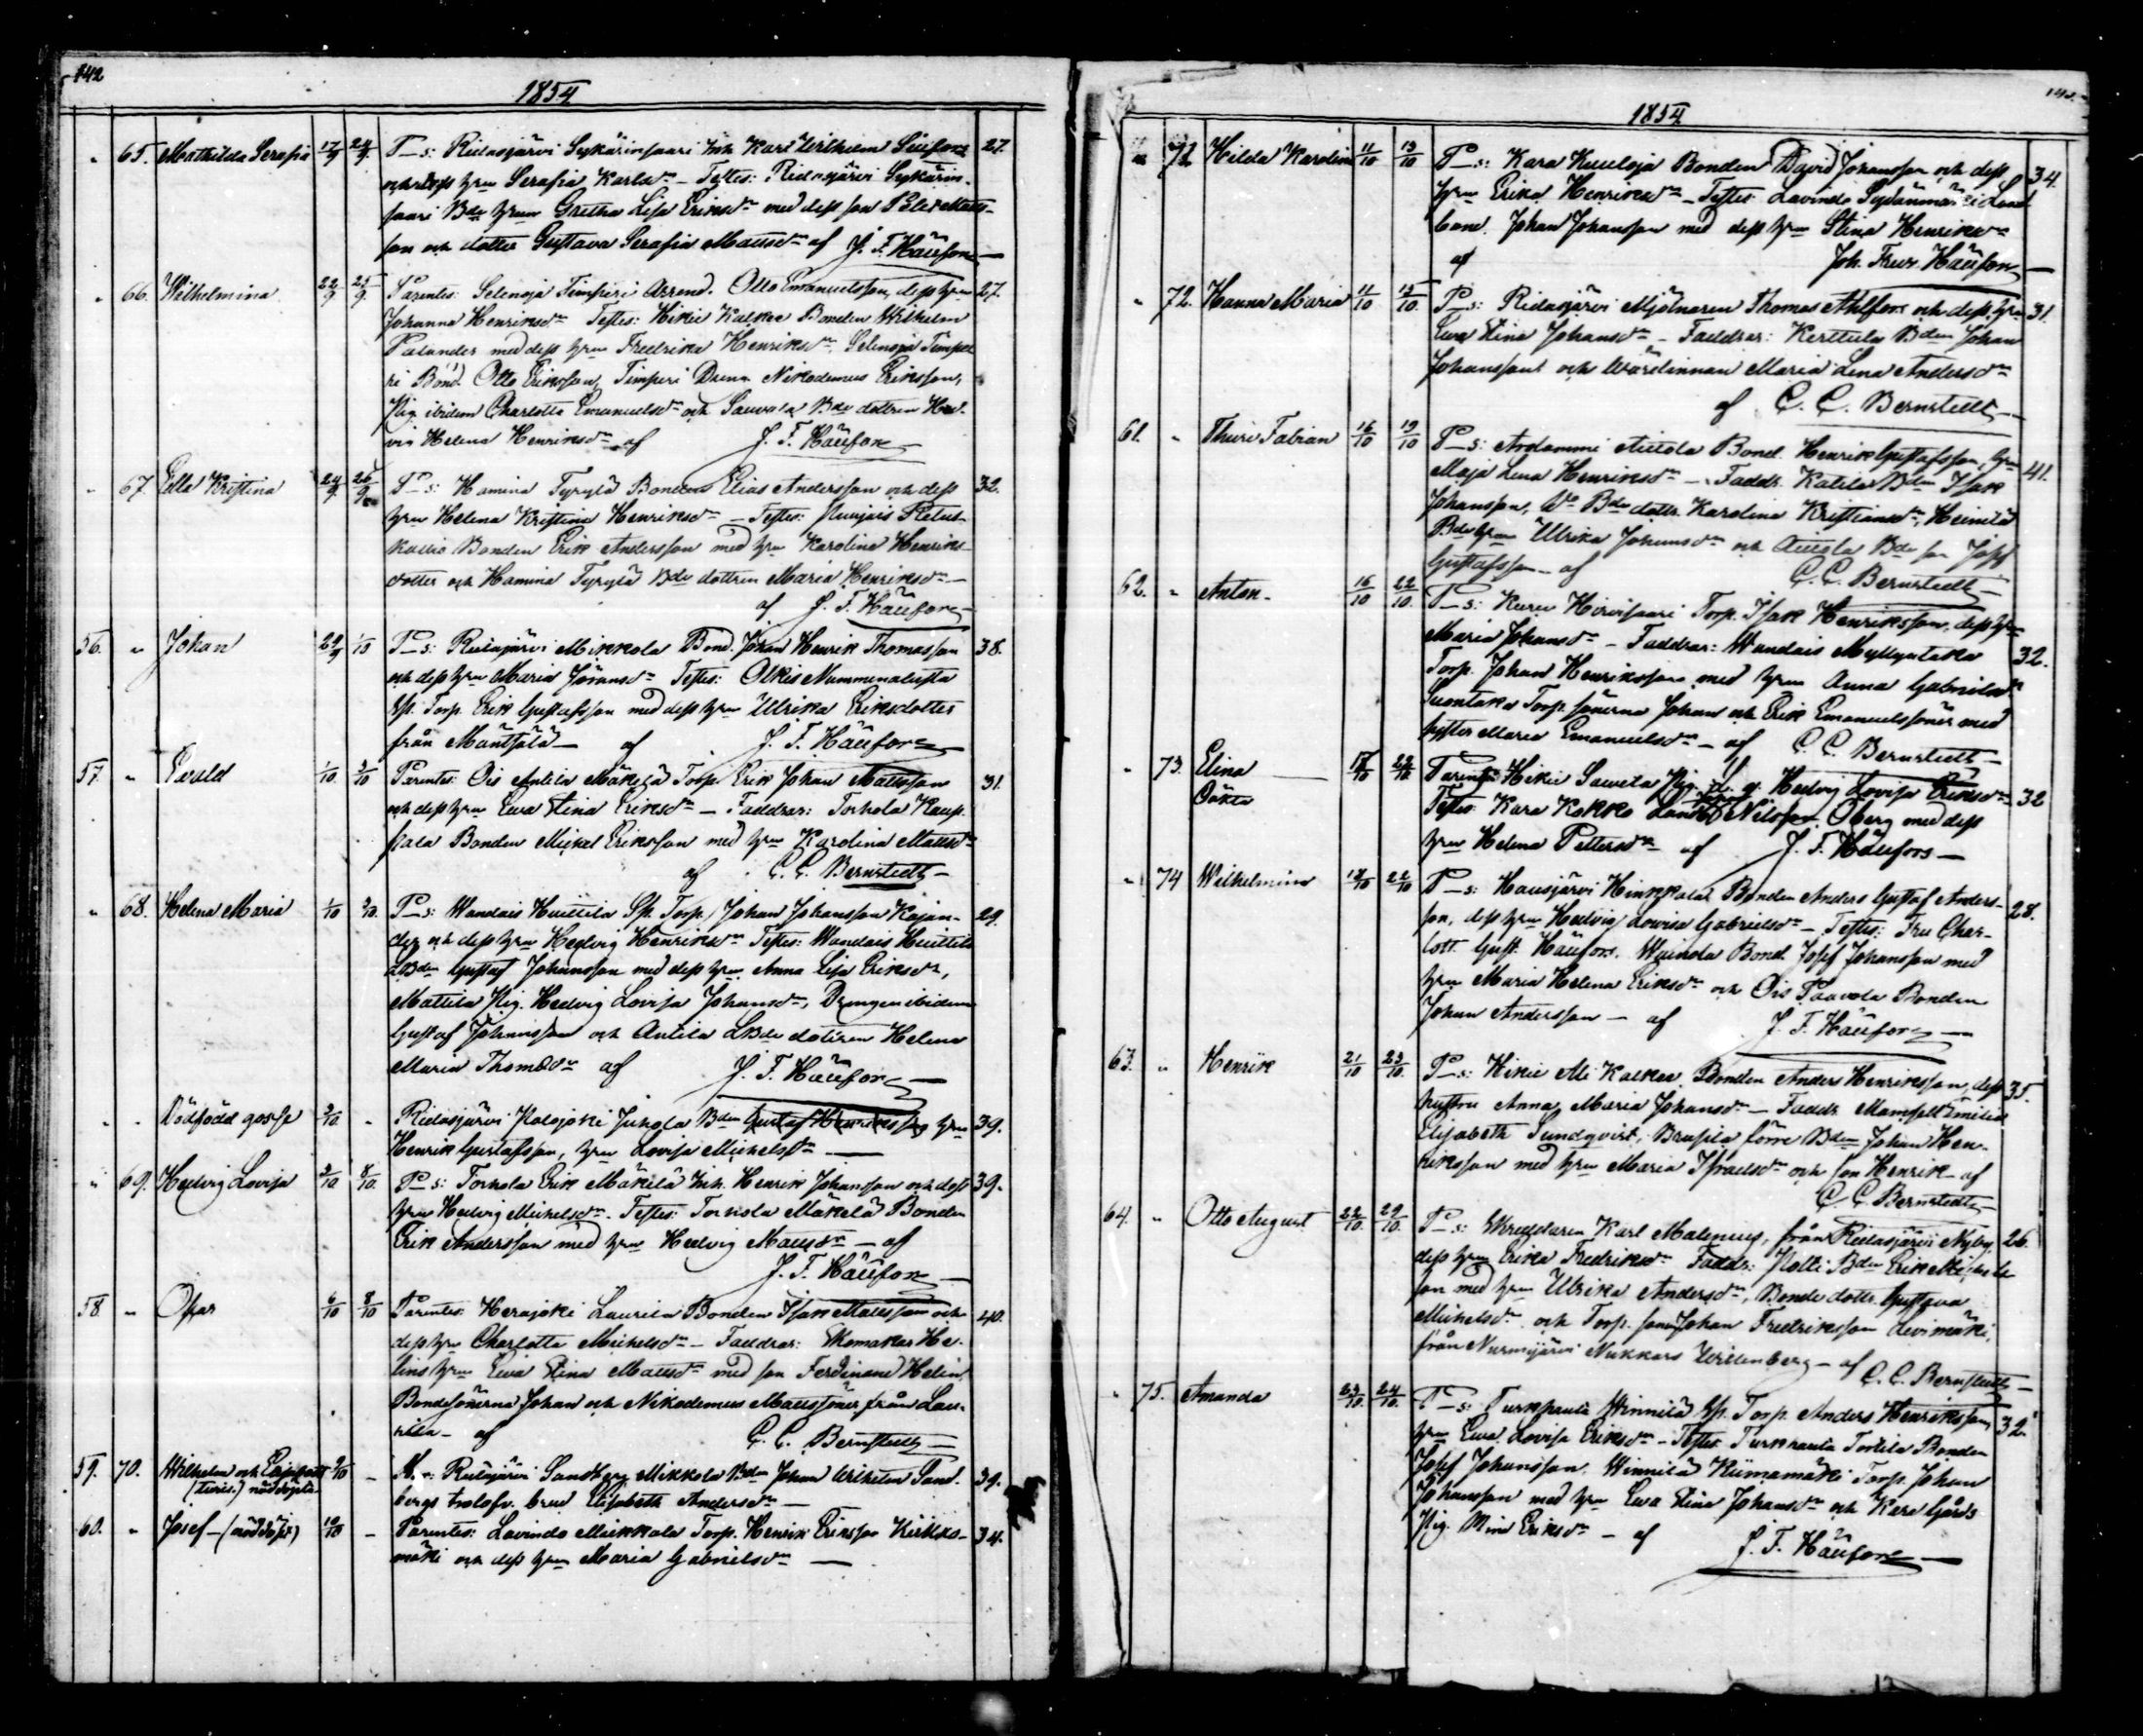 142
1854
" 65. Mathilda Serafia 17/9 24/9 P_s: Ridasjärvi Sykärinsaari Inh. Karl Wilhelm 27.
och dess hru Serafia Karlsdr – Testes: Ridasjärvi Sykärin-
saari Bde hrun Gretha Lisa Eriksdr med dess son Matts-
son och dotter Gustava Serafia Mattsdr af J. F. Häufors
" 66. Wilhelmina 22/9 25/9 Parentes: Selenoja Timperi Arrend. Otto Emanuelsson, dess hru 27.
Johanna Henriksdr Testes: Hikie Kalkee Bonden Wilhelm
Palander med dess hru Fredrika Henriksdr, Selenoja Timpe
ri Bond. Otto Eriksson, Timperi Dräng Nikodemus Eriksson,
Pig. ibidem Charlotta Emanuelsdr och Sauvala Bde dottren Hed-
vig Helena Henriksdr af J. F. Häufors
" 67. Ulla Kristina 24/9 26/9 P_s: Hamina Tyrylä Bonden Elias Andersson och dess 32.
hru Helena Kristina Henriksdr – Testes:
Bonden Erik Andersson med hru Karolina Henriks-
dotter och Hamina Tyrylä Bde dottren Maria Henriksdr –
af J. F. Häufors
56. " Johan 29/9 1/10 P_s: Ridasjärvi Mikkola Bond. Johan Henrik Thomasson 38.
och dess hru Maria Göransdr Testes: Olkis Nummenalusta
Sp. Torp. Erik Gustafsson med dess hru Ulrika Eriksdotter
från Mäntsälä – af J. F. Häufors
57. " Evald 1/10 3/10 Parentes: Ois Antila Mäkelä Torp. Erik Johan Mattsson 31.
och dess hru Eva Stina Eriksdr – Faddrar: Torhola Kaup-
pala Bonden Mickel Eriksson med hru Karolina Mattsdr
af C. C. Bernstedt –
" 68. Helena Maria 1/10 3/10. P_s: Wandais Huittila Sp. Torp. Johan Johansson Kajan- 29.
der och dess hru Hedvig Henriksdr Testes: Wandais Huittila
LBden Gustaf Johansson med dess hru Anna Lisa Eriksdr,
Mattila Pig. Hedvig Lovisa Johansdr, Drängen ibidem
Gustaf Johansson och Antila LBde dottren Helena
Maria Thomasdr af J. F. Häufors
" " Dödfödd gosse 3/10. " Ridasjärvi Palojoki Juhola Bden Gustaf Henriksson hru 39.
Henrik Gustafsson, hru Lovisa Michelsdr –
" 69. Hedvig Lovisa 3/10 8/10. P_s: Torhola Erik Mäkelä Inh. Henrik Johansson och dess 39.
hru Hedvig Michelsdr. Testes: Torhola Mäkelä Bonden
Erik Andersson med hru Hedvig Mattsdr – af
J. F. Häufors
58. " Oskar 6/10 8/10 Parentes: Herajoki Laurila Bonden Isak Mattsson och 40.
dess hru Charlotta Michelsdr – Faddrar: Skomakar He-
lins hru Eva Stina Mattsdr med son Ferdinand Helin,
Bondesönerna Johan och Nikodemus Mattssöner från Lau-
rila – af C. C. Bernstedt
59. 70. Wilhelm och 9/10 –
(tvill.) nöddöpta
Ridasjärvi Sandberg Mikkola Bden Johan Wilhelm Sand- 39.
bergs trolofv. brud Elisabeth Andersdr –
60. " Josef – (nöddöpt) 10/10 – Parentes: Lavinda Mikkola Torp. Henrik Eriksson Kirkko- 34.
mäki och dess hru Maria Gabrielsdr –
1854
" 71 Hilda Karolina 11/10 13/10 P_s: Kara Kuuloja Bonden David Johansson och dess 34.
hru Erika Henriksdr – Testes: Lavinda Sydänmaa Land
bond. Johan Johansson med dess hru Stina Henriksdr
af Joh. Fredr. Häufors
" 72. Hanna Maria 11/10 15/10. P_s: Ridasjärvi Mjölnaren Thomas Ahlfors och dess hru 31.
Eva Stina Johansdr – Faddrar: Kerttula Bden Johan
Johansson och Wärdinnan Maria Lena Andersdr
af C. C. Bernstedt –
61. " Thure Fabian 16/10 19/10 P_s: Arolammi Aittola Bond. Henrik Gustafsson, hru 41.
Maja Lena Henriksdr – Faddr. Katila Bden Isak
Johansson, Bde dottr. Karolina Kristiansdr, Heinilä
Bde hrun Ulrika Johansdr och Aittola Bde son Josef
Gustafsson – af C. C. Bernstedt –
62. " Anton. 16/10 22/10. P_s: Kuru Hirvisaari Torp. Isak Henriksson, dess hru 32.
Maria Johansdr – Faddrar: Wandais Myllyntaka
Torp. Johan Henriksson med hru Anna Gabrielsdr
Suontaka Torp. sönerna Johan och Erik Emanuelssöner med
syster Maria Emanuelsdr – af C. C. Bernstedt –
" 73. Elina – 17/10 22/10. Parens: Hikie Pig. Hedvig Lovisa Eriksdr 32
Oäkta Testes: Kara Kokko Nilsson Öberg med dess
hru Helena Pettersdr af J. F. Häufors –
" 74 Wilhelmina 18/10 22/10 P_s: Hausjärvi Hinkkala Bonden Anders Gustaf Anders- 28.
son, dess hru Hedvig Lovisa Gabrielsdr – Testes: Fru Char-
lott. Gust. Häufors, Bond. Josef Johansson med
hru Maria Helena Eriksdr och Ois Paavola Bonden
Johan Andersson – af J. F. Häufors –
63. " Henrik 21/10 23/10. P_s: Hikie Ali Kalkee Bonden Anders Henriksson, dess 35.
hustru Anna Maria Johansdr – Faddr. Mamsell Emilia
Elisabeth Sundqvist, förre Bden Johan Hen-
riksson med hru Maria Israelsdr och son Henrik – af
C. C. Bernstedt
64. " Otto August 22/10. 29/10. P_s: Skräddaren Karl Malenius, från Ridasjärvi Nyby, 26.
dess hru Erika Fredriksdr Faddr: Polti Bden Erik Michels
son med hru Ulrika Andersdr, Bonde dottr. Gustava
Michelsdr och Torp. sonen Johan Fredriksson Levimäki,
från Nurmijärvi Nukkars Wittenberg – af C. C. Bernstedt –
" 75. Amanda 23/10. 24/10. P_s: Turkhauta Winnilä Sp. Torp. Anders Henriksson, 32.
hru Eva Lovisa Eriksdr – Testes: Turkhauta Tortila Bonden
Josef Johansson, Winnilä Riimamäki Torp. Johan
Johansson med hru Eva Stina Johansdr och Kara Gårds
Pig. Mina Eriksdr – af J. F. Häufors –